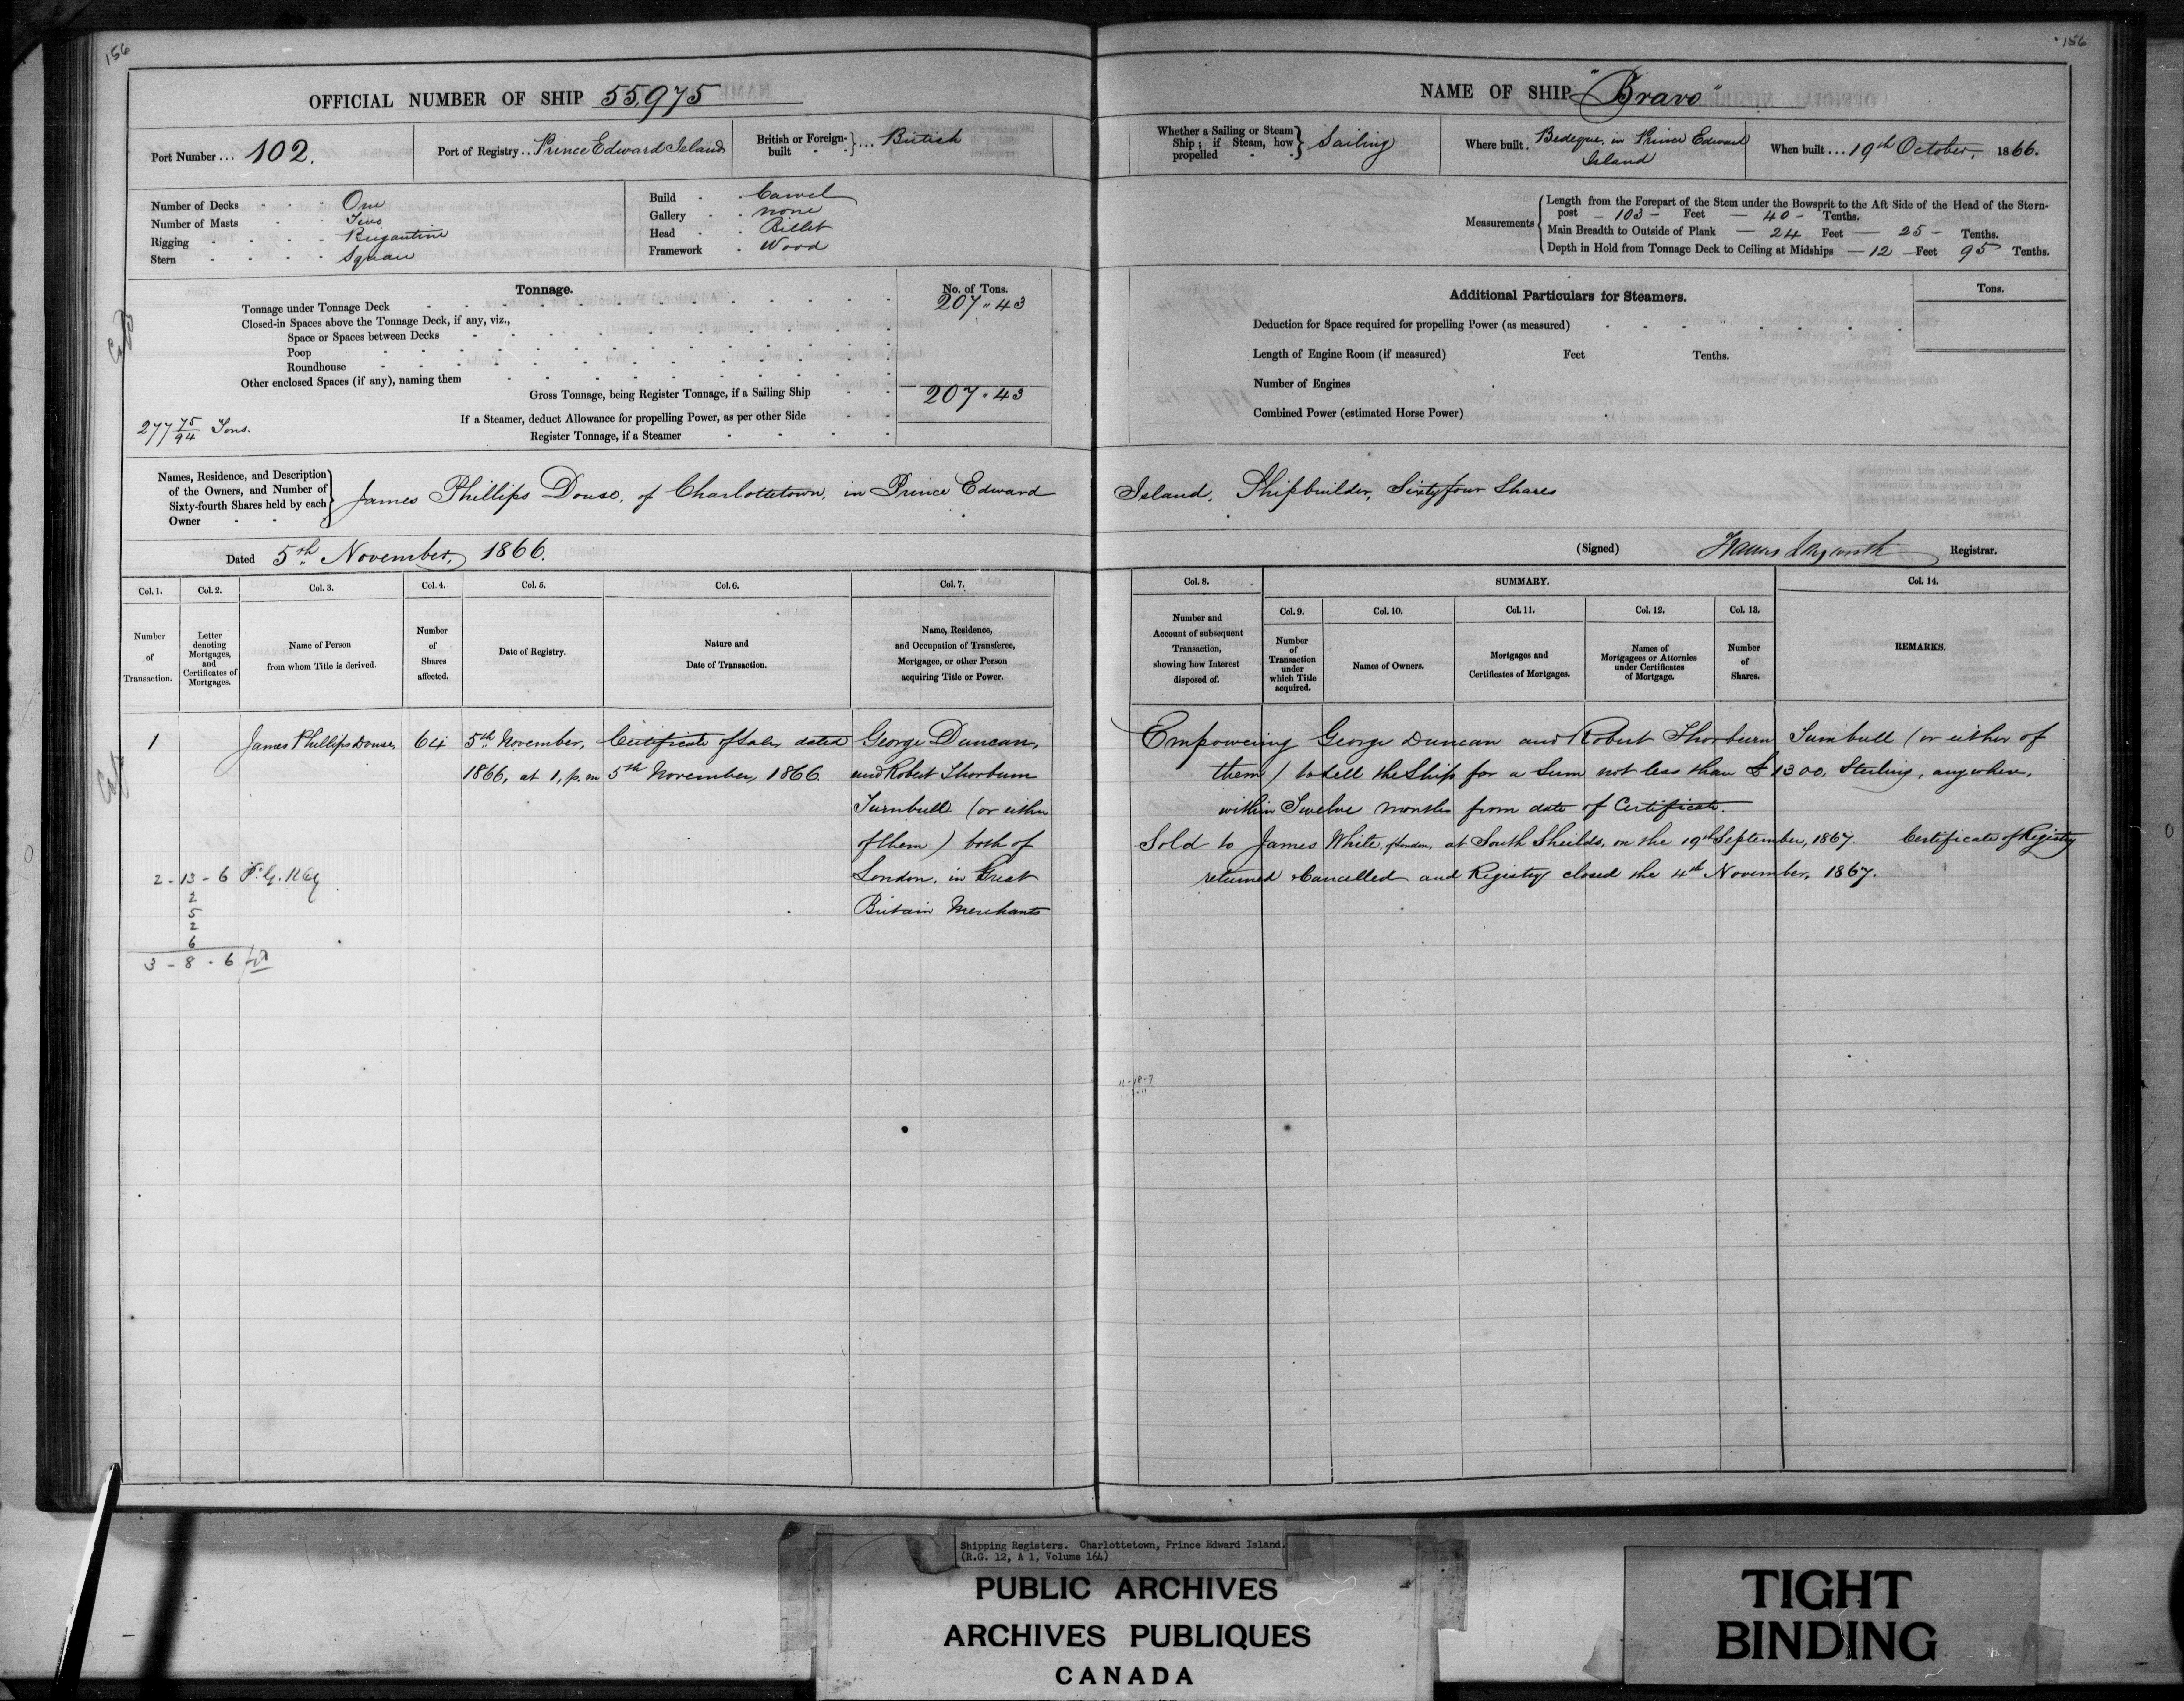 156
OFFICIAL NUMBER OF SHIP 55,975
Port Number ... 102.
Port of Registry .. Prince Edward Island
British or Foreign-built ... British
Number of Decks One
Number of Masts Two
Rigging Brigantine
Stern Square
Build Carvel
Gallery none
Head Billet
Framework Wood
Tonnage.
No. of Tons.
Tonnage under Tonnage Deck 207 " 43
Closed-in Spaces above the Tonnage Deck, if any, viz.,
Space or Spaces between Decks
Poop
Roundhouse
Other enclosed Spaces (if any), naming them
Gross Tonnage, being Register Tonnage, if a Sailing Ship 207 " 43
If a Steamer, deduct Allowance for propelling Power, as per other Side
Register Tonnage, if a Steamer
277 75/94 Tons.
Names, Residence, and Description
of the Owners, and Number of
Sixty-fourth Shares held by each
Owner
James Phillips Douse, of Charlottetown, in Prince Edward
Dated 5th November, 1866.
Col. 1. Col. 2. Col. 3. Col. 4. Col. 5. Col. 6. Col. 7.
Number of Transaction.
Letter denoting Mortgages, and Certificates of Mortgages.
Name of Person from whom Title is derived.
Number of Shares affected.
Date of Registry.
Nature and Date of Transaction.
Name, Residence, and Occupation of Transferee, Mortgagee, or other Person acquiring Title or Power.
1 James Phillips Douse, 64 5th November, Certificate of Sale, dated George Duncan,
1866, at 1, p.m 5th November, 1866. and Robert Thorburn
Turnbull (or either
of them) both of
London, in Great
Britain Merchants
2 - 13 - 6
2
5
2
6
3 - 8 - 6
156
NAME OF SHIP "Bravo"
Whether a Sailing or Steam Ship; if Steam, how propelled Sailing
Where built . Bedeque, in Prince Edward
Island
When built ... 19th October, 1866.
Measurements
Length from the Forepart of the Stem under the Bowsprit to the Aft Side of the Head of the Stern-
post - 103 - Feet - 40 - Tenths.
Main Breadth to Outside of Plank - 24 Feet - 25 - Tenths.
Depth in Hold from Tonnage Deck to Ceiling at Midships - 12 - Feet 95 Tenths.
Additional Particulars for Steamers.
Tons.
Deduction for Space required for propelling Power (as measured)
Length of Engine Room (if measured) Feet Tenths.
Number of Engines
Combined Power (estimated Horse Power)
Island, Shipbuilder, Sixty four Shares
(Signed) Registrar.
Col. 8.
SUMMARY.
Col. 9. Col. 10. Col. 11. Col. 12. Col. 13. Col. 14.
Number and Account of subsequent Transaction, showing how Interest disposed of.
Number of Transaction under which Title acquired.
Names of Owners.
Mortgages and Certificates of Mortgages.
Names of Mortgagees or Attornies under Certificates of Mortgage.
Number of Shares.
REMARKS.
Empowering George Duncan and Robert Thorburn Turnbull (or either of
them) to sell the Ship for a Sum not less than £1300, Sterling, any where,
within Twelve months from date of Certificate.
Sold to James White, of London, at South Sheilds, on the 19th September, 1867. Certificate of Registry
returned & Cancelled and Registry closed the 4th November, 1867.
Shipping Registers. Charlottetown, Prince Edward Island.
(R.G. 12, A 1, Volume 164)
PUBLIC ARCHIVES
ARCHIVES PUBLIQUES
CANADA
TIGHT
BINDING